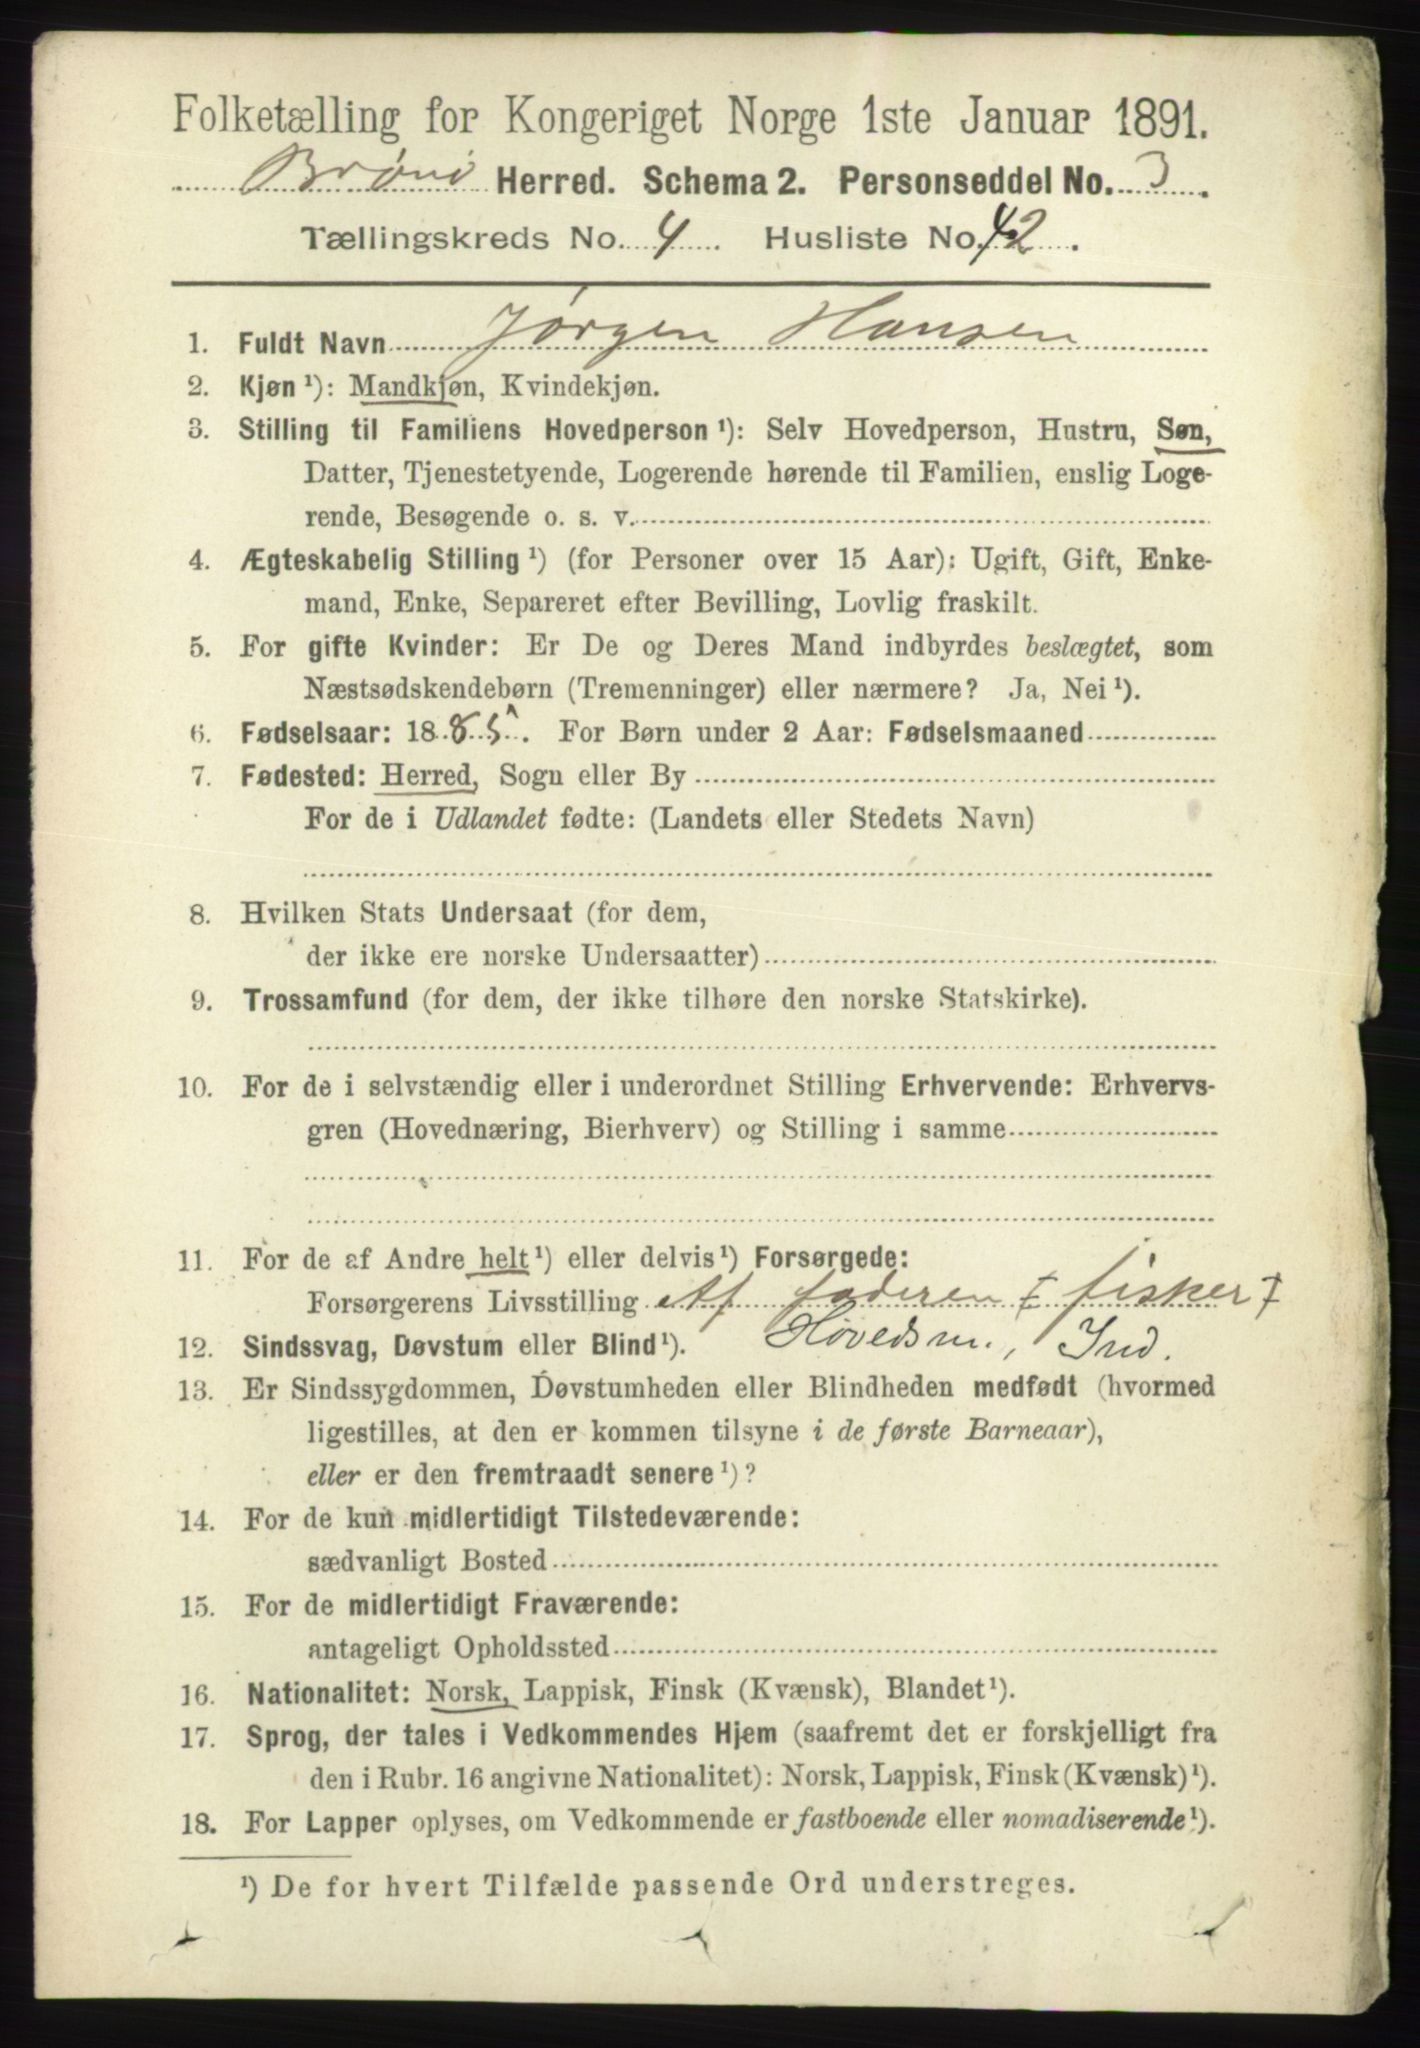 Folketælling for Kongeriget Norge 1ste Januar 1891.
Brønö Herred. Schema 2. Personseddel No. 3.
Tællingskreds No. 4. Husliste No. 42.
1. Fuldt Navn Jørgen Hansen
2. Kjøn ¹): Mandkjøn, Kvindekjøn.
3. Stilling til Familiens Hovedperson ¹): Selv Hovedperson, Hustru, Søn,
Datter, Tjenestetyende, Logerende hørende til Familien, enslig Loge-
rende, Besøgende o. s. v.
4. Ægteskabelig Stilling ¹) (for Personer over 15 Aar): Ugift, Gift, Enke-
mand, Enke, Separeret efter Bevilling, Lovlig fraskilt.
5. For gifte Kvinder: Er De og Deres Mand indbyrdes beslægtet, som
Næstsødskendebørn (Tremenninger) eller nærmere? Ja, Nei ¹).
6. Fødselsaar: 1885. For Børn under 2 Aar: Fødselsmaaned
7. Fødested: Herred, Sogn eller By
For de i Udlandet fødte: (Landets eller Stedets Navn)
8. Hvilken Stats Undersaat (for dem,
der ikke ere norske Undersaatter)
9. Trossamfund (for dem, der ikke tilhøre den norske Statskirke).
10. For de i selvstændig eller i underordnet Stilling Erhvervende: Erhvervs-
gren (Hovednæring, Bierhverv) og Stilling i samme
11. For de af Andre helt ¹) eller delvis ¹) Forsørgede:
Forsørgerens Livsstilling Af faderen ‡ fisker ‡
12. Sindssvag, Døvstum eller Blind ¹). Høvedsm., Ind.
13. Er Sindssygdommen, Døvstumheden eller Blindheden medfødt (hvormed
ligestilles, at den er kommen tilsyne i de første Barneaar),
eller er den fremtraadt senere ¹)?
14. For de kun midlertidigt Tilstedeværende:
sædvanligt Bosted
15. For de midlertidigt Fraværende:
antageligt Opholdssted
16. Nationalitet: Norsk, Lappisk, Finsk (Kvænsk), Blandet ¹).
17. Sprog, der tales i Vedkommendes Hjem (saafremt det er forskjelligt fra
den i Rubr. 16 angivne Nationalitet): Norsk, Lappisk, Finsk (Kvænsk) ¹).
18. For Lapper oplyses, om Vedkommende er fastboende eller nomadiserende ¹).
¹) De for hvert Tilfælde passende Ord understreges.